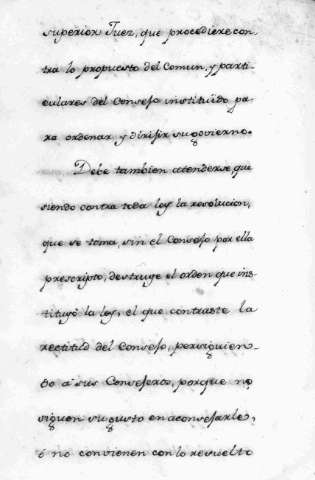 superior Juez, que procediere con-
tra lo propuesto del Comun, y parti-
culares del Consejo instituido pa-
ra ordenar, y dirijir su govierno.
Debe tambien atenderse, que
siendo contra toda ley la resolucion,
que se toma, sin el Consejo por ella
prescripto, destruye el orden que ins-
tituyó la ley, el que contraste la
rectitud del Consejo, persiguien-
do a sus Consejeros, porque no
siguen su gusto en aconsejarle,
ó no convienen con lo resuelto